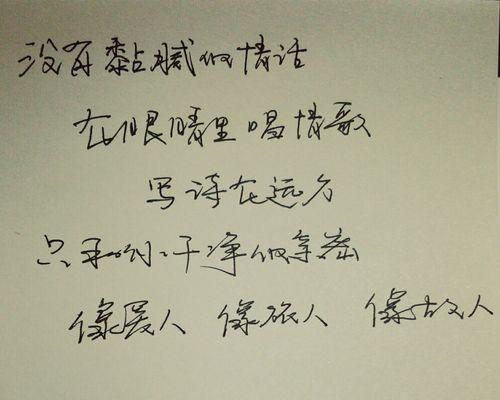 没有黏腻的情话
在眼睛里唱情歌
写诗在远方
只 干净的亲密
像爱人 像旅人 像故人